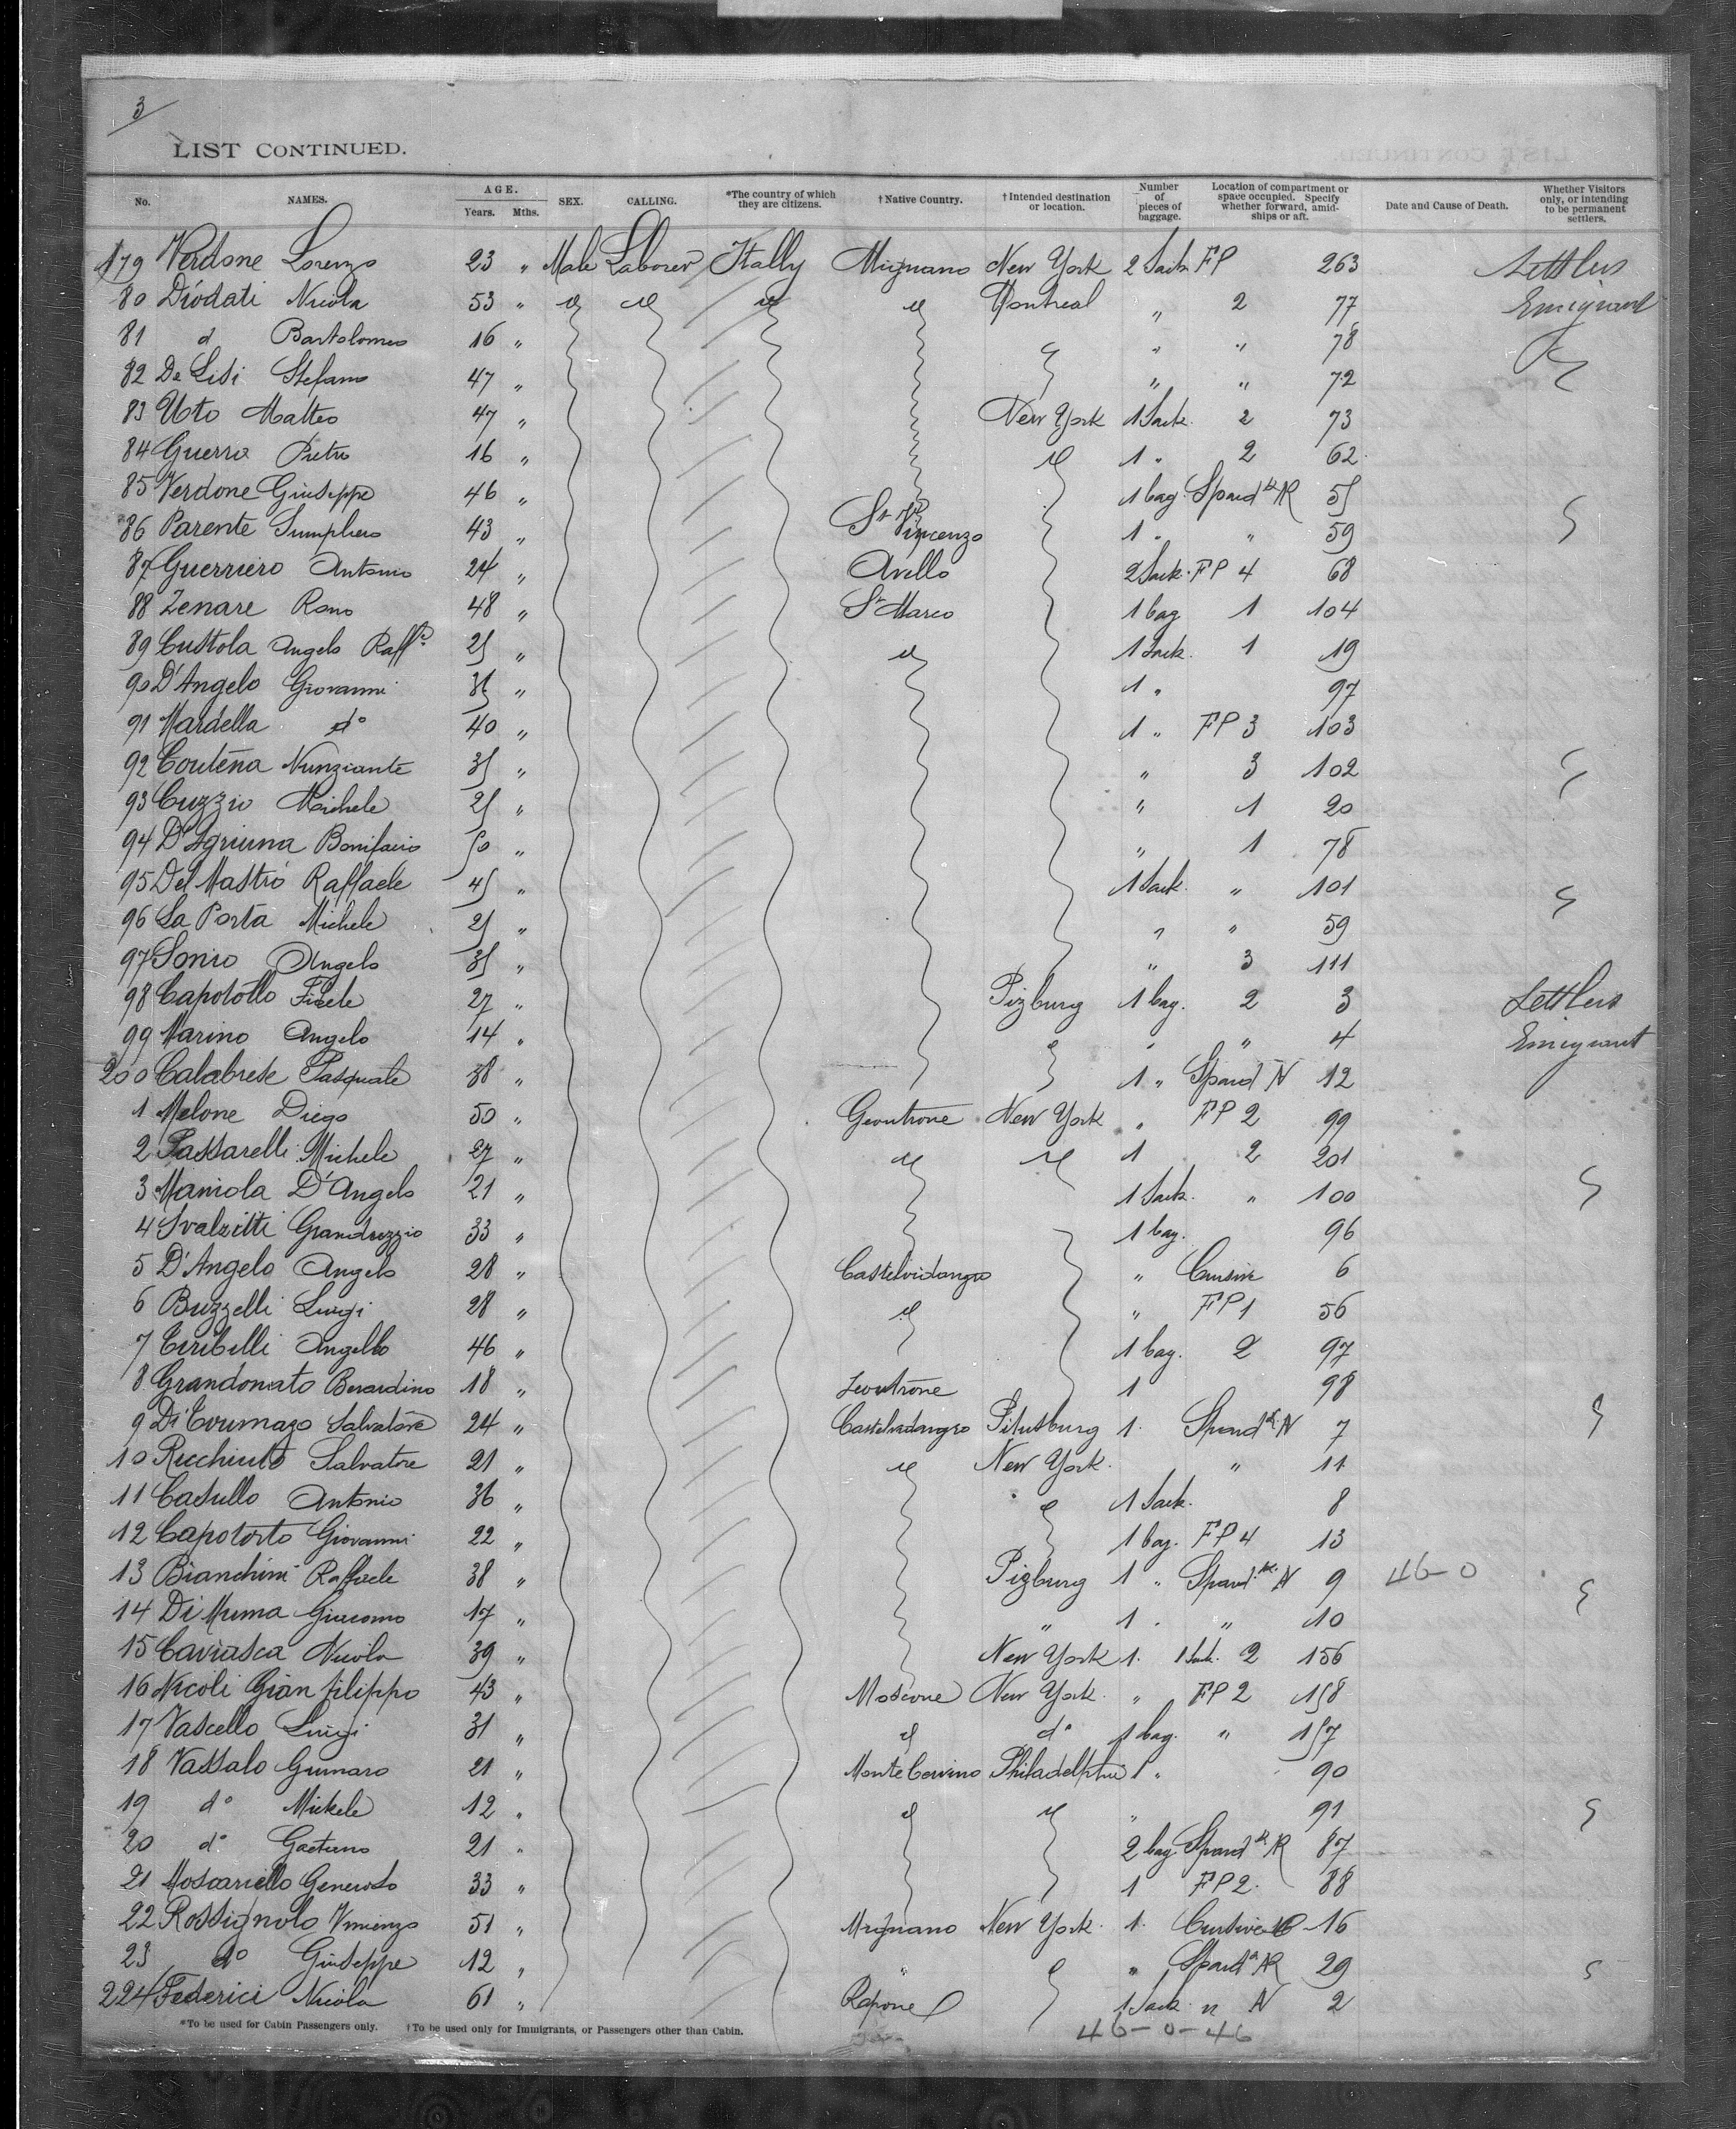 3
LIST CONTINUED.
No. NAMES. AGE. Years. Mths. SEX. CALLING. *The country of which they are citizens. †Native Country. †Intended destination or location. Number of pieces of baggage. Location of compartment or space occupied. Specify whether forward, amidships or aft. Date and Cause of Death. Whether Visitors only, or intending to be permanent settlers.
179 Verdone Lorenzo 23 " Male Laborer Itally Mignano New York 2 Sack FP 263 Settlers
80 Diodati Nicola 53 " Montreal " 2 77 Emigrant
81 d Bartolomeo 16 " " " 78
82 De Lisi Stefano 47 " " " 72
83 Uto Matteo 47 " New York 1 Sack. 2 73
84 Guerra Pietro 16 " 1 " 2 62
85 Verdone Giuseppe 46 " 1 bag. 55
86 Parente 43 " St Vincenzo 1 " " 59
87 Guerriero Antonio 24 " Avello 2 Sack. FP 4 68
88 Zenare Rono 48 " St Marco 1 bag 1 104
89 Custola Angelo Raffe 25 " 1 Sack. 1 19
90 D'Angelo Giovanni 36 " 1 " 97
91 Mardella do 40 " 1 " FP 3 103
92 Nunziante 35 " " 3 102
93 Cuzzio Michele 25 " " 1 20
94 Bonifacio 50 " " 1 78
95 Del Mastro Raffaele 45 " 1 Sack. " 101
96 La Porta Michele 25 " " " 59
97 Sonio Angelo 35 " " 3 111
98 Capototto Fidele 27 " Pizburg 1 bag. 2 3 Settlers
99 Marino Angelo 14 " " " 4 Emigrant
200 Calabrese Pasquale 38 " 1 " N 12
1 Melone Diego 50 " Geoutrone New York " FP 2 99
2 Passarelli Michele 27 " 1 2 201
3 Maniola D'Angelo 21 " 1 Sack. " 100
4 33 " 1 bag. 96
5 D'Angelo Angelo 28 " " 6
6 Buzzelli Luigi 28 " " FP 1 56
7 Ciribelli Angello 46 " 1 bag. 2 97
8 Grandonato Berardino 18 " Leoutrone 1 98
9 Salvatore 24 " Pitutsburg 1. N 7
10 Ricchiuto Salvatore 21 " New York. " 11
11 Casullo Antonio 36 " 1 Sack. 8
12 Capotorto Giovanni 22 " 1 bag. FP 4 13
13 Bianchini Raffaele 38 " Pizburg 1 " N 9 46-0
14 Di Muma Giacomo 17 " " 1 . " 10
15 Caviasca Nicola 39 " New York 1. 1 Sack. 2 156
16 Nicoli Gian filippo 43 " Moscone New York. " FP 2 158
17 Vascello Luigi 31 " do 1 bag. " 157
18 Vassalo Gennaro 21 " Monte Corvino Philadelphia 1 " 90
19 do Michele 12 " " 91
20 do Gaetano 21 " 2 bag 87
21 Moscariello Generoso 33 " 1 FP 2. 88
22 Rossignolo Vincenzo 51 " Mignano New York. 1. 16
23 do Giuseppe 12 " " " 29
224 Federici Nicola 61 " Rapone 1 Sack. " N 2
*To be used for Cabin Passengers only. †To be used only for Immigrants, or Passengers other than Cabin.
46-0-46